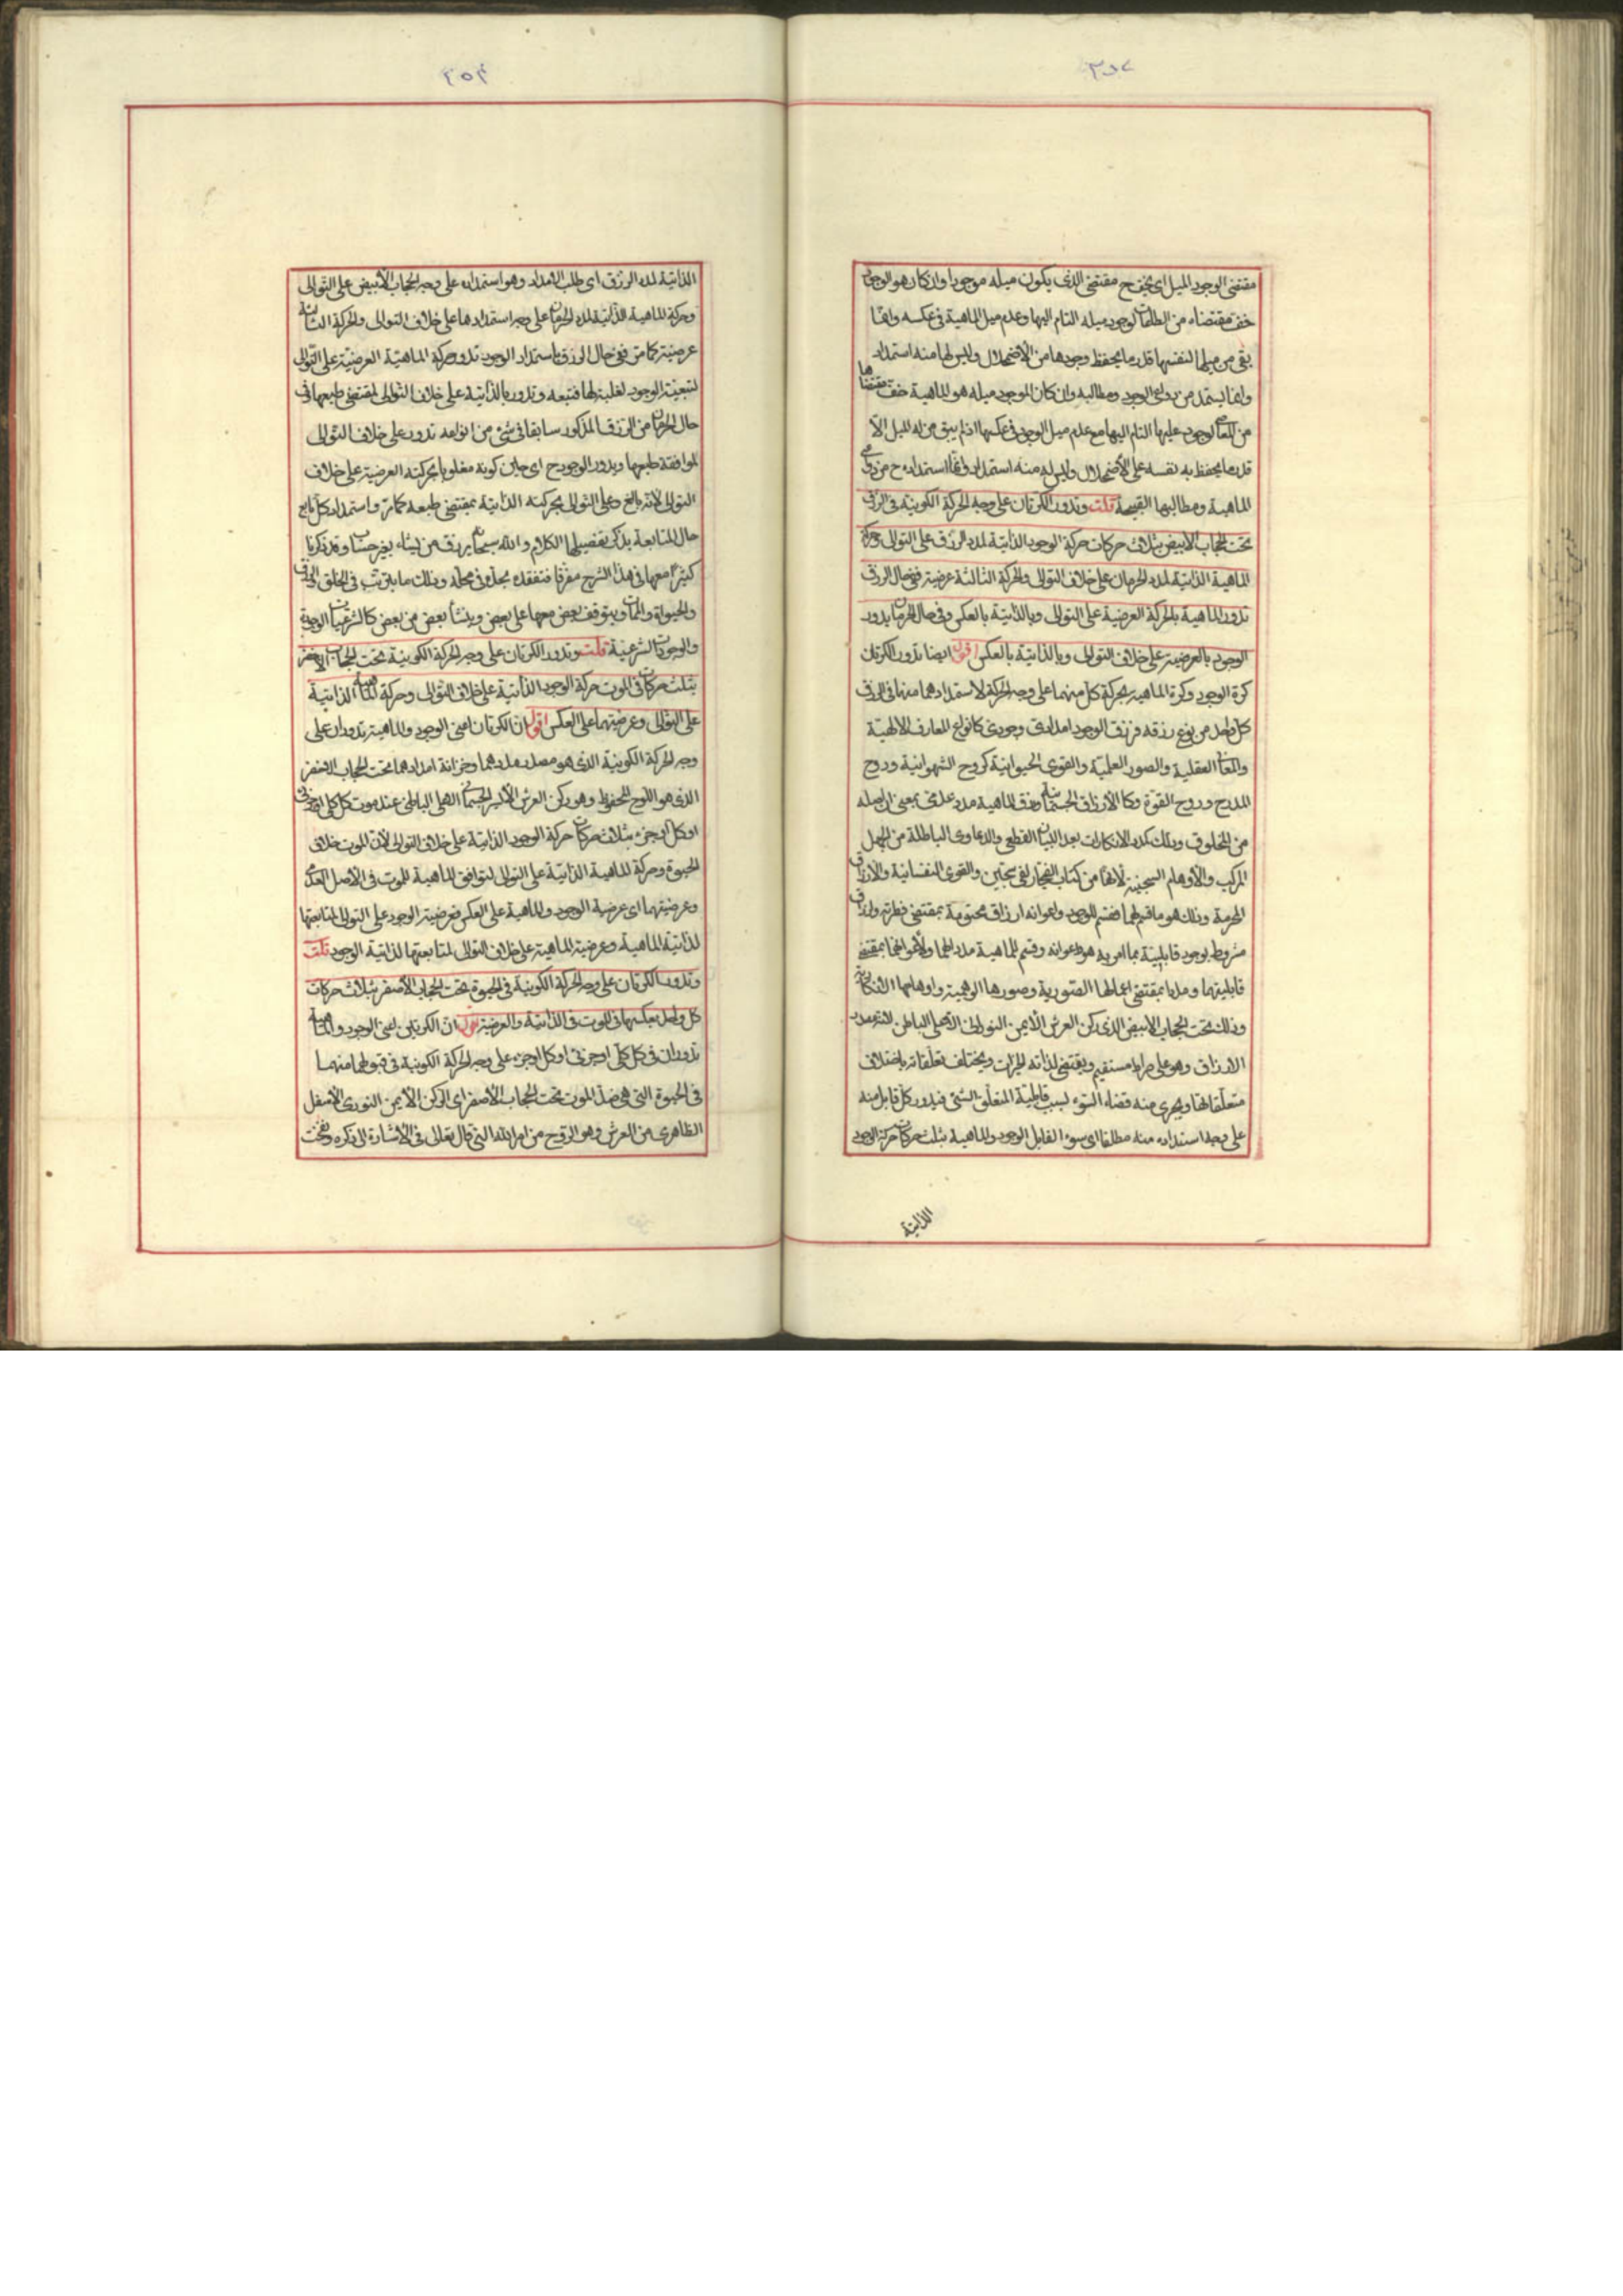 ٣٥٧
مقتضى الوجود الميل اى يخف ح مقتضى الذى يكون ميله موجودا وان كان هو الوجود
خف مقتضاه من الطاعات لوجود ميله التام اليها وعدم ميل الماهية فى عكسه وانما
بقى من ميلها لنفسها قدر ما يحفظ وجودها من الاضمحلال وليس لها منه استمداد
وانما يستمد من دواعى الوجود ومطالبه وان كان الموجود ميله هو الماهية خف مقتضاها
من المعاصى لوجود ميلها التام اليها مع عدم ميل الوجود فى عكسها اذ لم يبق من له الميل الا
قدر ما يحفظ به نفسه على الأضمحلال وليس له منه استمداد وانما استمداده ح من دواعى
الماهية ومطالبها القبيحة قلت وتدور الكرتان على وجه الحركة الكونية فى الرزق
تحت الحجاب الابيض بثلاث حركات حركة الوجود الذاتية لمدد الرزق على التوالى وحركة
الماهية الذاتية لمدد الحرمان على خلاف التوالى والحركة الثالثة عرضية ففى حال الرزق
تدور الماهية بالحركة العرضية على التوالى وبالذاتية بالعكس وفى حال الحرمان يدور
الوجود بالعرضية على خلاف التوالى وبالذاتية بالعكس اقول ايضا تدور الكرتان
كرة الوجود وكرة الماهية بحركة كل منهما على وجه الحركة لاستمدادهما منها فى الرزق
كل واحد من نوع رزقه فرزق الوجود امدادى وجودى كانواع المعارف الالهية
والمعانى العقلية والصور العلمية والقوى الحيوانية كروح الشهوانية وروح
المدرج وروح القوة وكالأرزاق الجسمانية ورزق الماهية مدد عدمى بمعنى ان اصله
من المخلوق وذلك كمدد الانكارات بعد البيان القطعى والدعاوى الباطلة من الجهل
المركب والأوهام السجينية لانها من كتاب الفجار لفى سجين والقوى النفسانية والأرزاق
المحرمة وذلك هو ما قسم لهما فقسم للوجود واعوانه ارزاق محتومة بمقتضى فطرته وارزاق
مشروط بوجود قابلية بما امر به هو واعوانه وقسم للماهية مددا لها ولأعوانها بمقتضى
قابليتهما ومددا بمقتضى اعمالها الصورية وصورها الوهمية واوهامها
وذلك تحت الحجاب الابيض الذى ركن العرش الأيمن النورانى الأعلى الباطن
الارزاق وهو على صراط مستقيم ويقتضى لذاته الخيرات ويختلف تعلقاته باختلاف
متعلقاتها ويجرى منه قضاء السوء لسبب قابلية المتعلق السىء فيدور كل قابل منه
على وجه استمداده منه مطلقا اى سوء القابل الوجود والماهية بثلث حركات حركة الوجود
الذاتية
٣٥٨
الذاتية لمدد الرزق اى طلب الامداد وهو استمداده على وجه الحجاب الأبيض على التوالى
وحركة الماهية الذاتية لمدد الحرمان على وجه استمدادها على خلاف التوالى والحركة الثالثة
عرضية كما مر ففى حال الرزق باستمداد الوجود تدور حركة الماهية العرضية على التوالى
لتبعية الوجود لغلبته لها فتتبعه وتدور بالذاتية على خلاف التوالى لمقتضى طبعها فى
حال الحرمان من الرزق المذكور سابقا فى شىء من انواعه تدور على خلاف التوالى
لموافقة طبعها ويدور الوجود ح اى حين كونه مغلوبا بحركته العرضية على خلاف
التوالى لأنه بالغ وعلى التوالى بحركته الذاتية بمقتضى طبعه كما مر واستمداد كل تابع
حال المتابعة يذكر تفصيلها الكلام والله سبحانه يرزق من يشاء بغير حساب وقد ذكرنا
كثيرا معها فى هذا الشرح مفرقا فتفقده تجده فى محله وذلك ما يترتب فى الخلق والرزق
والحيوة والممات ويتوقف بعض معها على بعض وينشأ بعض من بعض كالشرعيات الوجودية
والوجودات الشرعية قلت وتدور الكرتان على وجه الحركة الكونية تحت الحجاب الاخضر
بثلث حركات فى الموت حركة الوجود الذاتية على خلاف التوالى وحركة الماهية الذاتية
على التوالى وعرضيتهما على العكس اقول ان الكرتان اعنى الوجود والماهية تدوران على
وجه الحركة الكونية الذى هو مصدر مددهما وخزانة امدادهما تحت الحجاب الاخضر
الذى هو اللوح المحفوظ وهو ركن العرش الأيسر الجسمانى الاعلى الباطن عند موت كل كلى او جزئى
او كل او جزء بثلاث حركات حركة الوجود الذاتية على خلاف التوالى لأن الموت خلاف
الحيوة وحركة الماهية الذاتية على التوالى لتوافق الماهية للموت فى الأصل العدمى
وعرضيتهما اى عرضية الوجود والماهية على العكس فعرضية الوجود على التوالى لمتابعتها
لذاتية الماهية وعرضية الماهية على خلاف التوالى لمتابعتها لذاتية الوجود قلت
وتدور الكرتان على وجه الحركة الكونية فى الحيوة تحت الحجاب الأصفر بثلاث حركات
كل واحد بعكسها فى الموت فى الذاتية والعرضية اقول ان الكرتين اعنى الوجود والماهية
تدوران فى كل كلى او جزئى او كل او جزء على وجه الحركة الكونية فى قبولهما منهما
فى الحيوة التى هى ضد الموت تحت الحجاب الأصفر اى الركن الأيمن النورى الأسفل
الظاهرى من العرش وهو الروح من امر الله التى قال تعالى فى الأشارة الى ذكره ونفخت